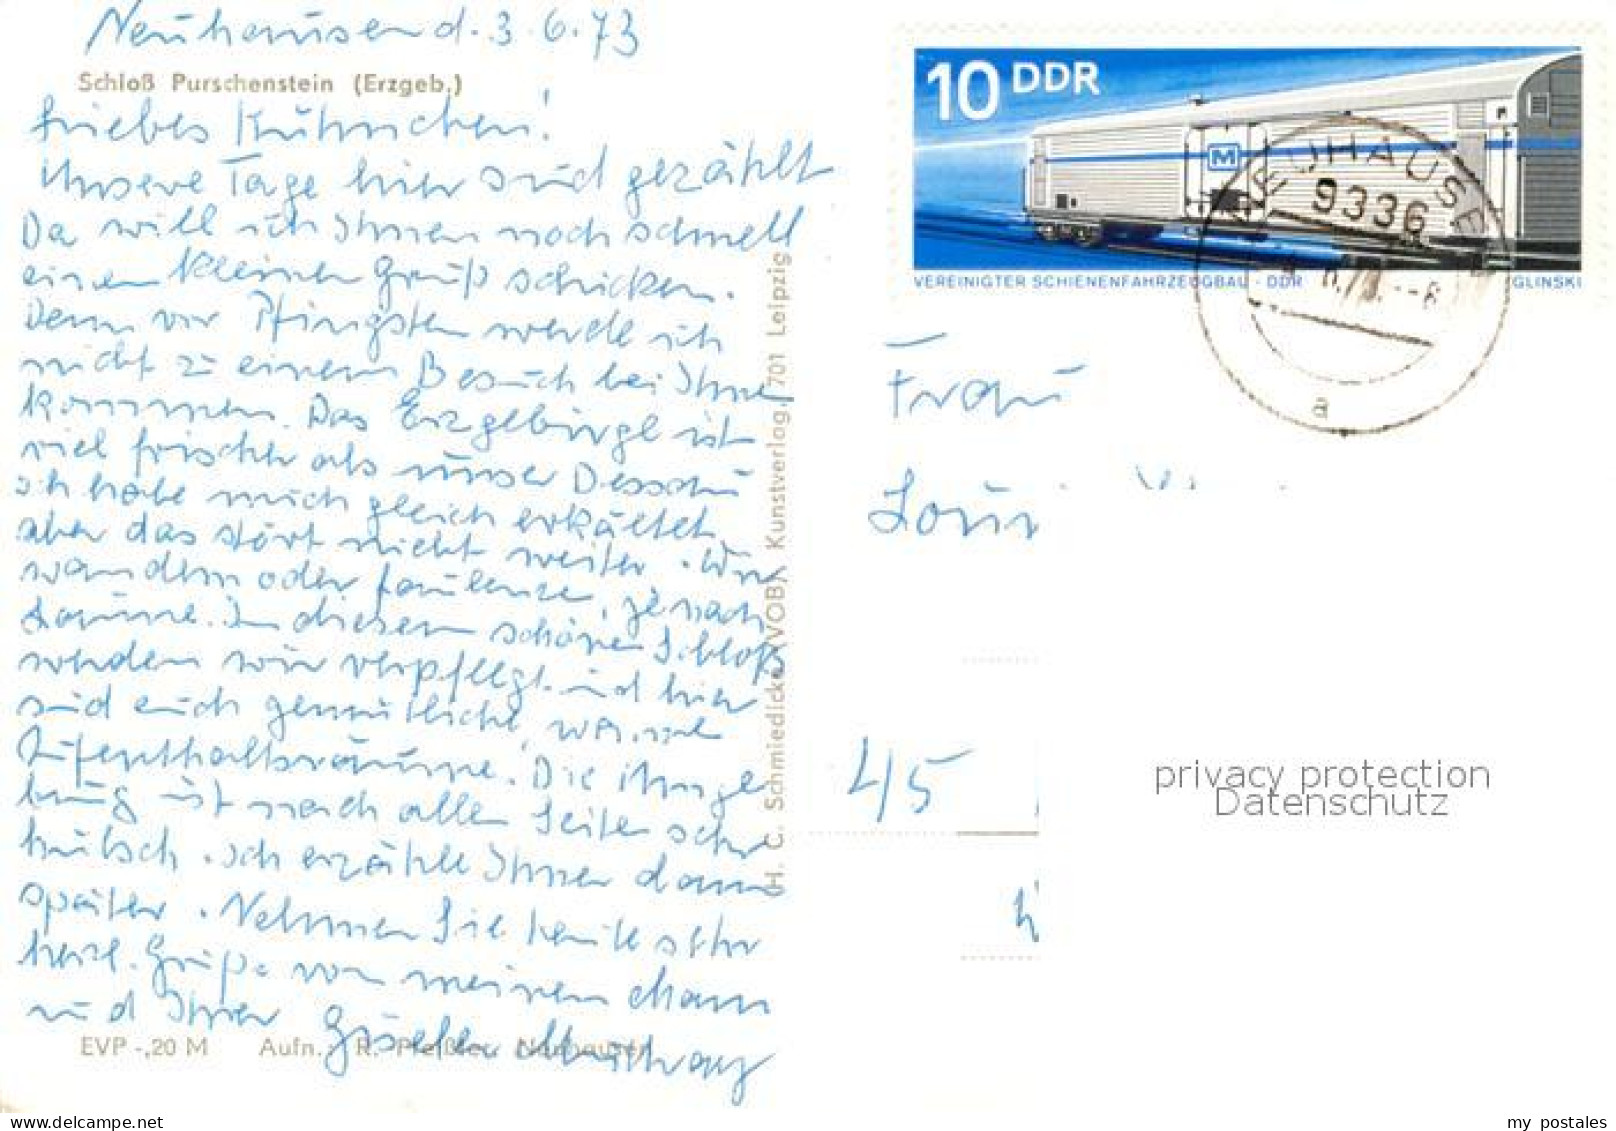 Neuhausen d. 3.6.73
Schloß Purschenstein (Erzgeb.)
Liebes Kühnchen!
Unsere Tage hier sind gezählt
Da will ich Ihnen noch schnell
einen kleinen Gruß schicken.
Denn vor Pfingsten werde ich
nicht zu einem Besuch bei Ihnen
kommen. Das Erzgebirge ist
viel frischer als unser Dessau
ich habe mich gleich erkältet
aber das stört nicht weiter. Wir
wandern oder faulenze, je nach
Laune. In diesem schönen Schloß
werden wir verpflegt und hier
sind auch gemütliche, warme
Aufenthaltsräume. Die Umge
bung ist nach allen Seiten sehr
hübsch. Ich erzähle Ihnen dann
später. Nehmen Sie heute sehr
herzl. Grüße von meinem Mann
und Ihrer Gisela
EVP -,20 M Aufn.: R. Neuhausen
(H. C. Schmiedicke (VOB) Kunstverlag, 701 Leipzig
10 DDR
M
VEREINIGTER SCHIENENFAHRZEUGBAU · DDR GLINSKI
NEUHAUSEN
9336
a
Frau
45
privacy protection
Datenschutz
my postales